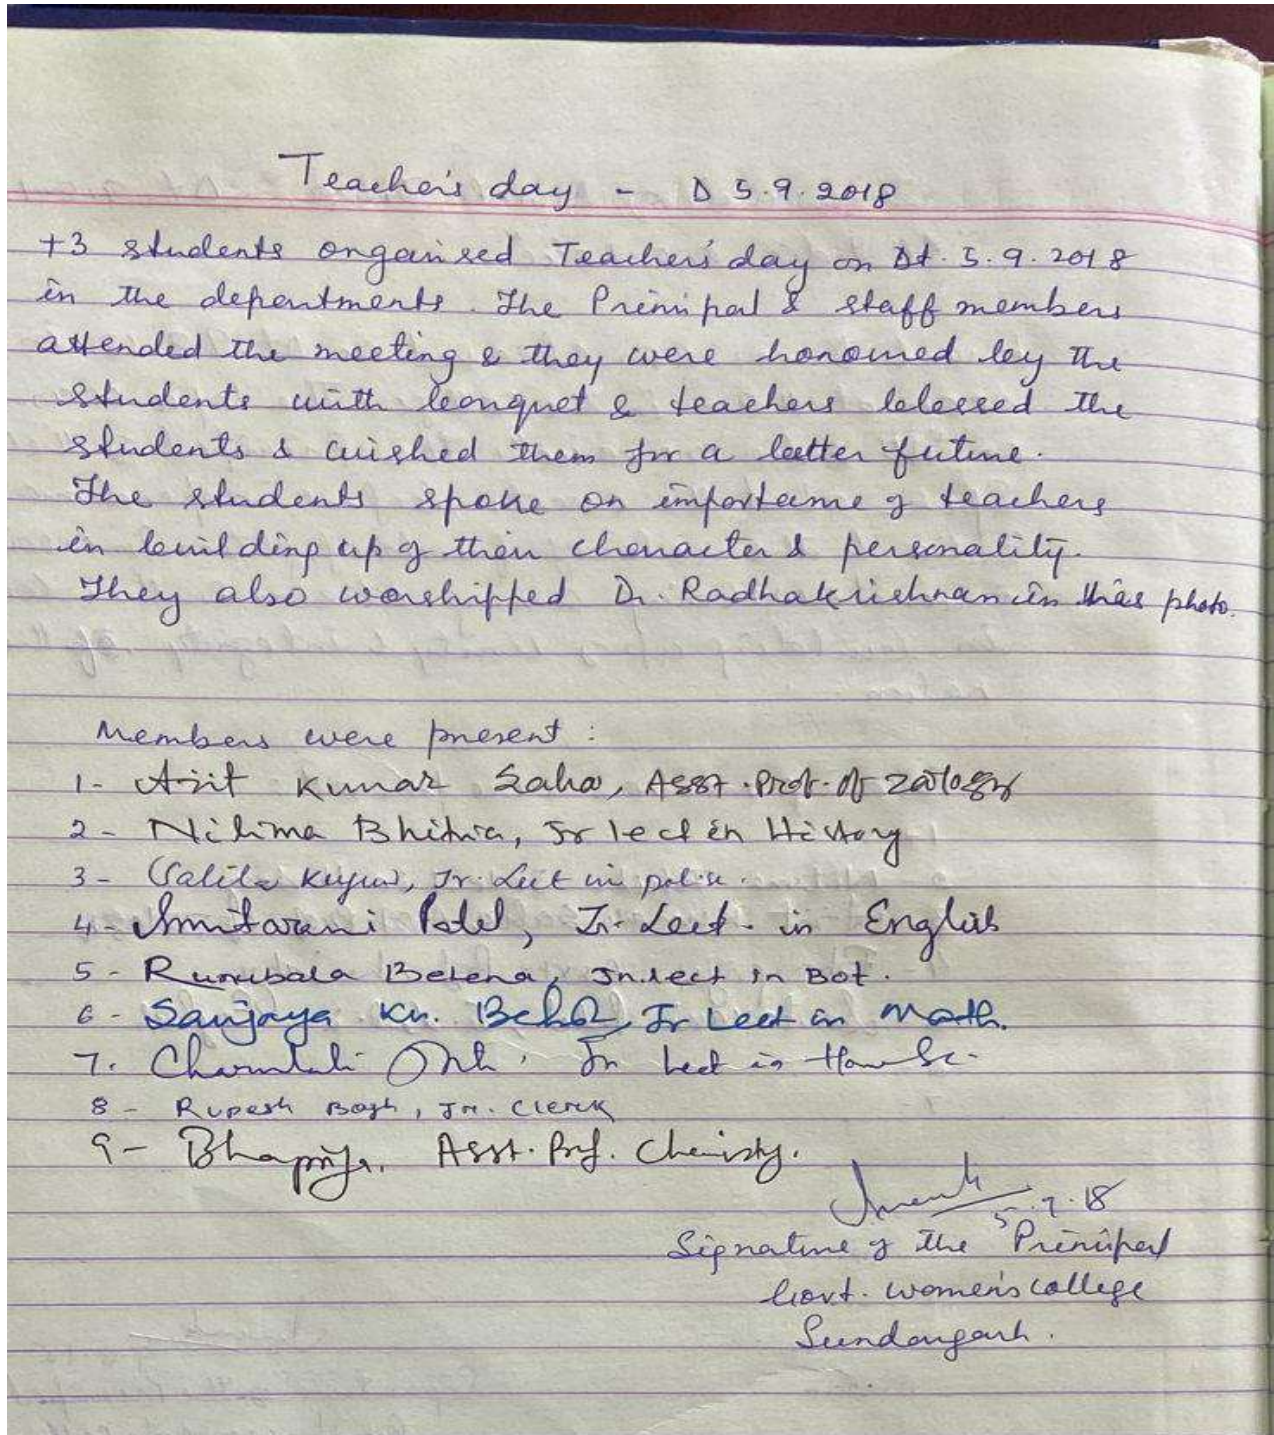 Teacher's day - D 5.9.2018
+3 students organised Teachers' day on Dt. 5.9.2018
in the departments. The Prinipal & staff members
attended the meeting & they were honoured by the
students with bouquet & teachers blessed the
students & wished them for a better future.
The students spoke on importance of teachers
in building up of their character & personality.
They also worshipped Dr. Radhakrishnan in his photo.
Members were present :
1- Kumar Saha, Asst. Prof. of Zoology
2- Nilima Bhitria, Jr lect in History
3- Jr. Lect in pol.sc.
4- Smitarani Patel, Jr. Lect. in English
5- Runubala Behera, Jr.lect in Bot.
6- Sanjaya Kr. Jr Lect in Math.
7. Jr Lect in Home Sc.
8- Rupesh Bagh, Jr. Clerk
9- Asst. Prof. Chemistry.
5.9.18
Signature of the Principal
Govt. women's college
Sundargarh.